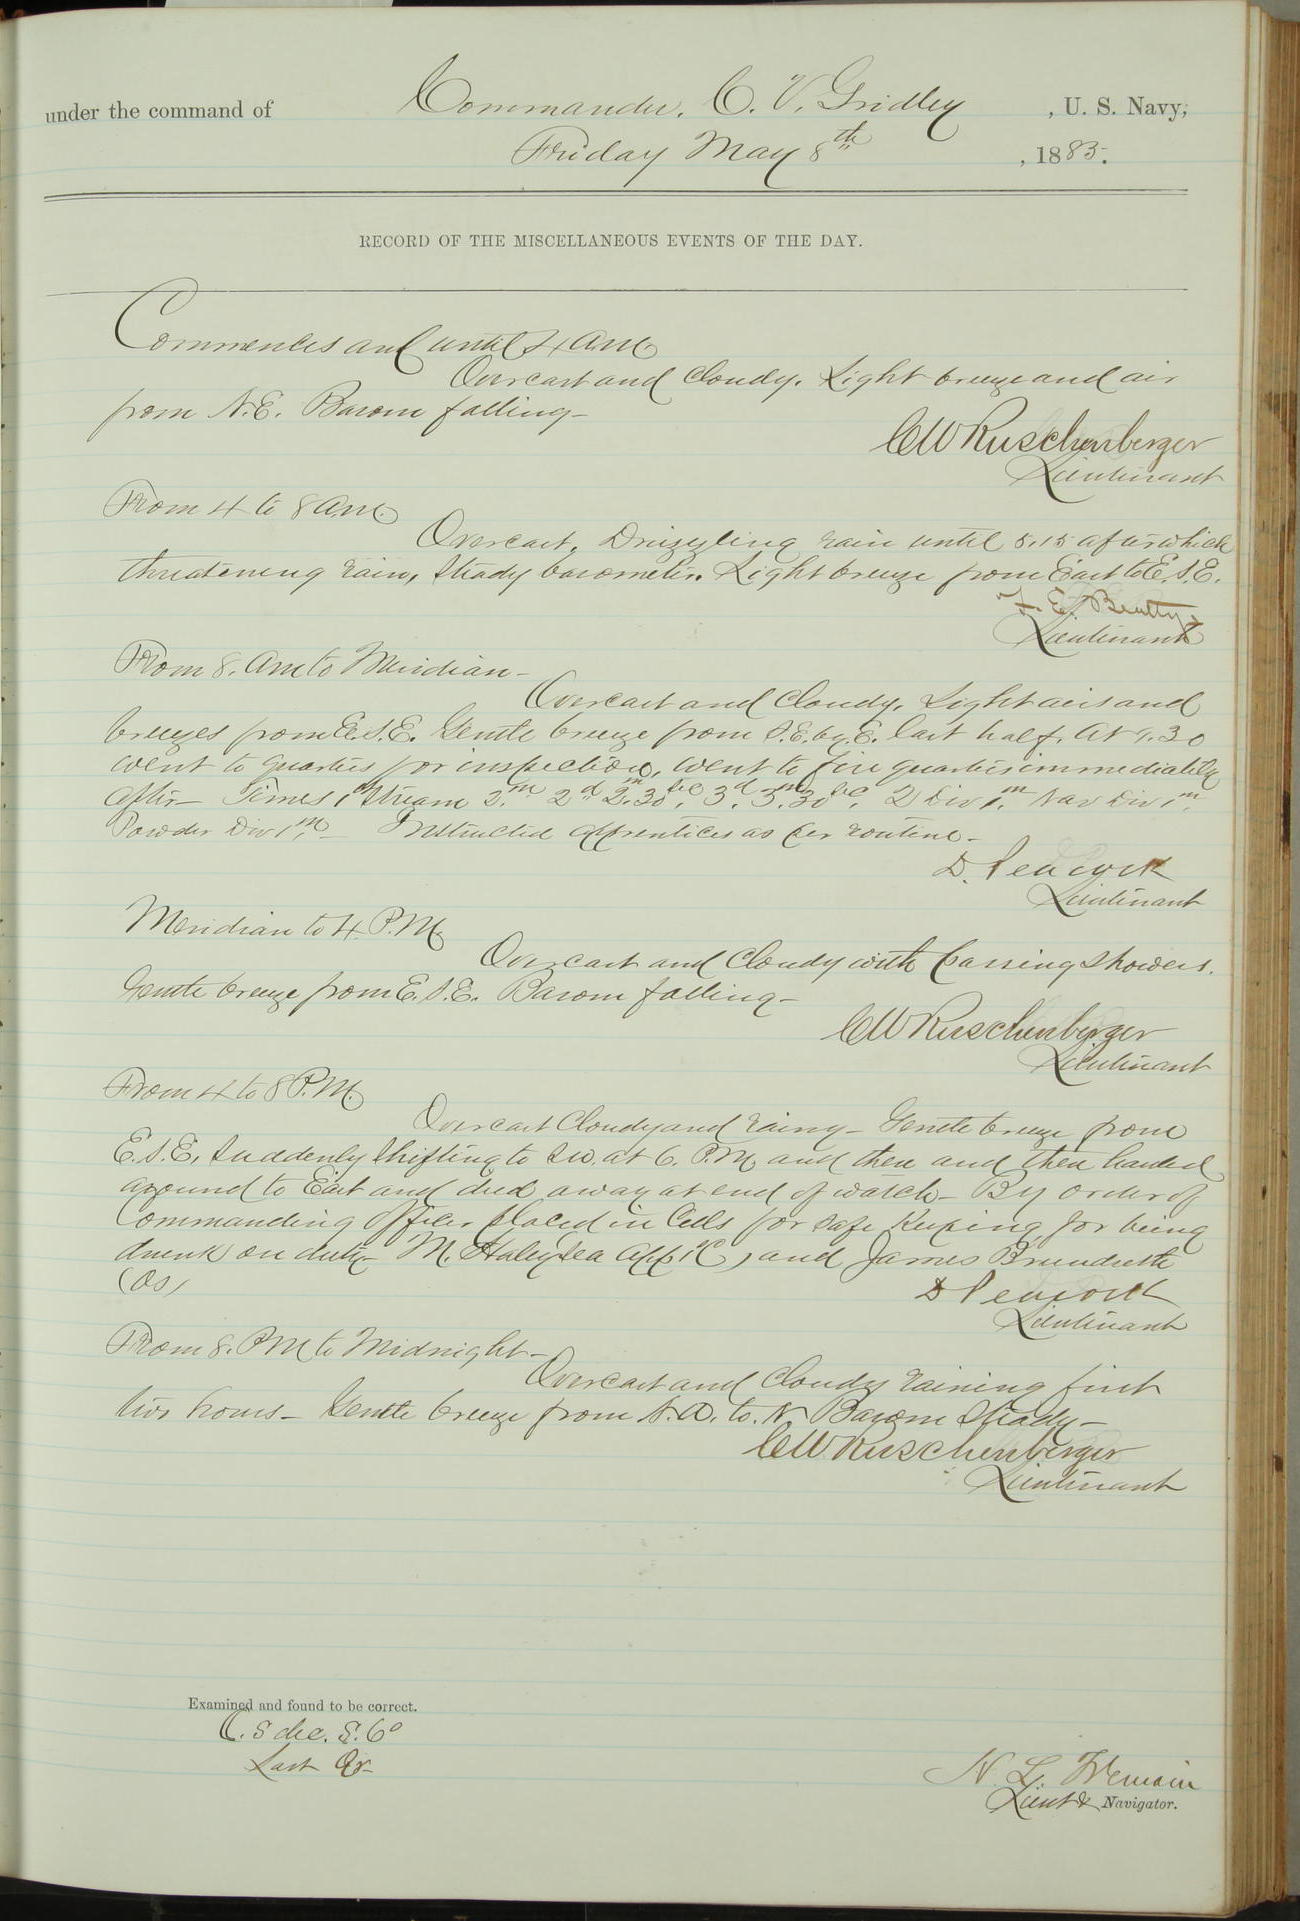 under the command of Commander. C. V. Gridley , U. S. Navy,
Friday May 8th , 1885.
RECORD OF THE MISCELLANEOUS EVENTS OF THE DAY.
Commences and until 4 A.M.
Overcast and cloudy. Light breeze and air
from N.E. Barom falling-
C W Ruschenberger
Lieutenant
From 4 to 8 A.M.
Overcast. Drizzling rain until 5.15 after which
threatening rain, steady barometer. Light breeze from East to E.S.E.
F. E. Beatty,
Lieutenant
From 8. AM to Meridian-
Overcast and cloudy. Light airs and
breezes from E.S.E. Gentle breeze from S.E. by. E. last half. At 9.30
went to quarters for inspection, went to fire quarters immediately
after- Times 1st Stream 2m. 2d 2m.30sec, 3d. 3m.30sec. 2 Div 1m. Nav Div 1m.
Powder Div 1m.- Instructed apprentices as per routine-
D. Peacock
Lieutenant
Meridian to 4. P.M.
Overcast and cloudy with passing showers.
Gentle breeze from E.S.E. Barom falling-
C W Ruschenberger
Lieutenant
From 4 to 8 P.M.
Overcast cloudy and rainy- Gentle breeze from
E.S.E, suddenly shifting to SW. at 6. P.M. and then and then hauled
around to East and died away at end of watch- By order of
Commanding Officer placed in Cells for safe keeping for being
drunk on duty M. Haley Sea App 1C, and James
(OS)
D Peacock
Lieutenant
From 8. P.M to Midnight-
Overcast and cloudy raining first
two hours- Gentle breeze from to. N Barom steady-
C W Ruschenberger
Lieutenant
Examined and found to be correct.
C. S dec. S. 6°
Last Qr-
Lieut & Navigator.